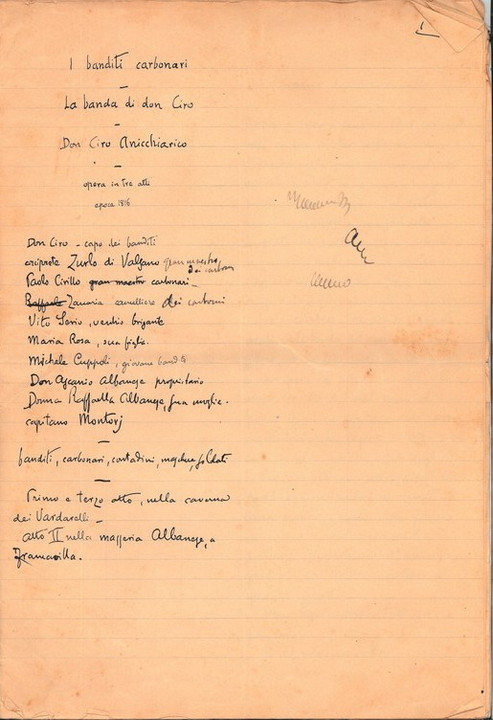 1
I banditi carbonari
—
La banda di don Ciro
—
Don Ciro Anicchiarico
—
opera in tre atti
epoca 1816
Don Ciro - capo dei banditi
arciprete Zurlo di Valsano gran maestro
dei carbon
Paolo Cirillo gran maestro carbonari -
Raffaele Zanaria cavalliere dei carbonari
Vito Serio, vecchio brigante
Maria Rosa, sua figlia.
Michele Cuppoli, giovane
Don Ascanio Albanese proprietario
Donna Raffaella Albanese, sua moglie.
capitano Montorj
—
banditi, carbonari, contadini, soldati
—
Primo e terzo atto, nella caverna
dei Vardarelli -
atto II nella masseria Albanese, a
Francavilla.